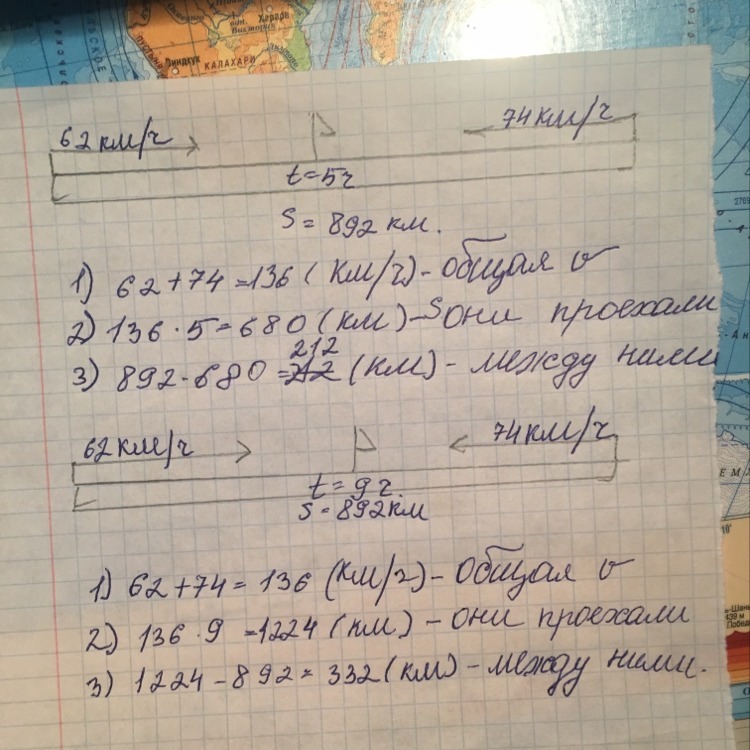 Харare
Виктория
Виндхук
КАЛАХАРИ
62 км/ч
74 км/ч
t=5ч
S = 892 км.
1) 62+74=136 (км/ч)-общая v
2) 136·5=680(км)-S они проехали
212
3) 892-680=212 (км)-между ними
62км/ч
74км/ч
t=9ч.
S=892км
1) 62+74=136 (км/ч)-общая v
2) 136·9=1224(км)-они проехали
3) 1224-892=332(км)-между ними.